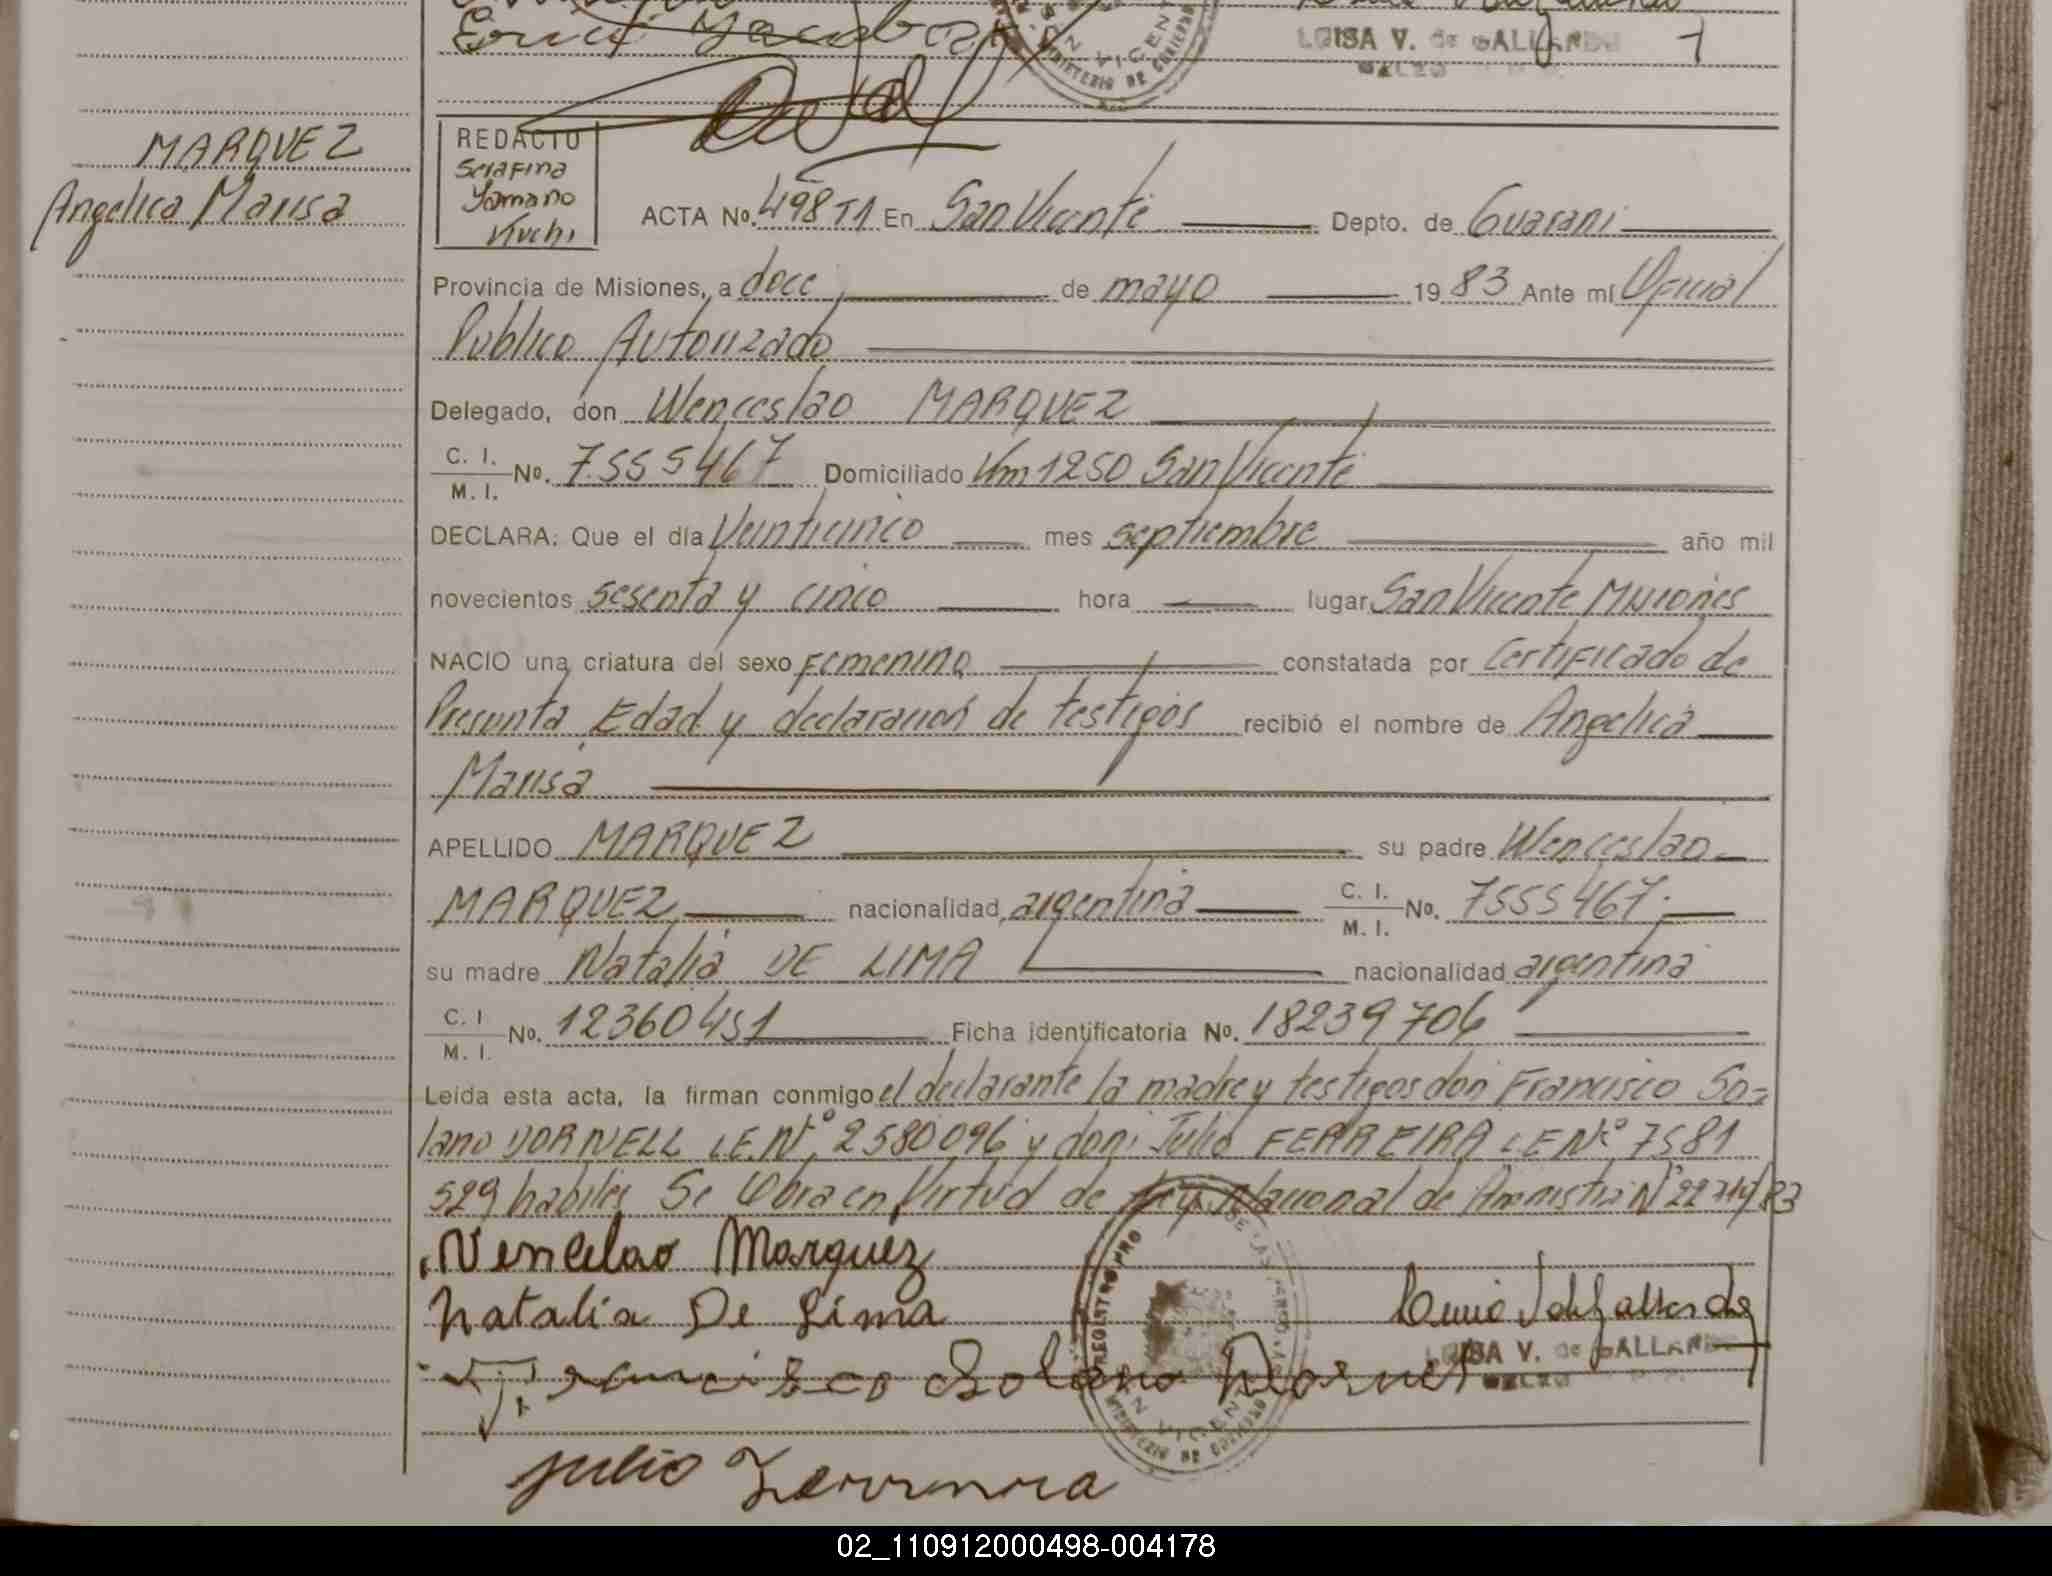 LUISA V. de GALLANDO
MARQUEZ
Angelica Marisa
REDACTO
Serafina
Yamano
Kuchi
ACTA No. 498 T1 En San Vicente Depto. de Guarani
Provincia de Misiones, a doce de mayo 1983 Ante mí Oficial
Publico Autorizado
Delegado, don Wenceslao MARQUEZ
C. I.
M. I. No. 7.555467 Domiciliado Km 1250 San Vicente
DECLARA: Que el día Veinticinco mes septiembre año mil
novecientos sesenta y cinco hora lugar San Vicente Misiones
NACIO una criatura del sexo Femenino constatada por Certificado de
Presunta Edad y declaracion de testigos recibió el nombre de Angelica
Marisa
APELLIDO MARQUEZ su padre Wenceslao
MARQUEZ nacionalidad argentina C. I.
M. I. No. 7555467
su madre Natalia DE LIMA nacionalidad argentina
C. I
M. I. No. 12360451 Ficha identificatoria No. 18239706
Leída esta acta, la firman conmigo el declarante la madre y testigos don Francisco So-
lano DORNELL L.E. N° 2580096 y don: Julio FERREIRA L E N° 7581
529 habiles Se Obra en Virtud de Ley Nacional de Amnistia N° 22714/83
Wencelao Marquez
Natalia De Lima
Francisco Solano Dornel
LUISA V. de GALLANDO
Julio Ferreira
02_110912000498-004178